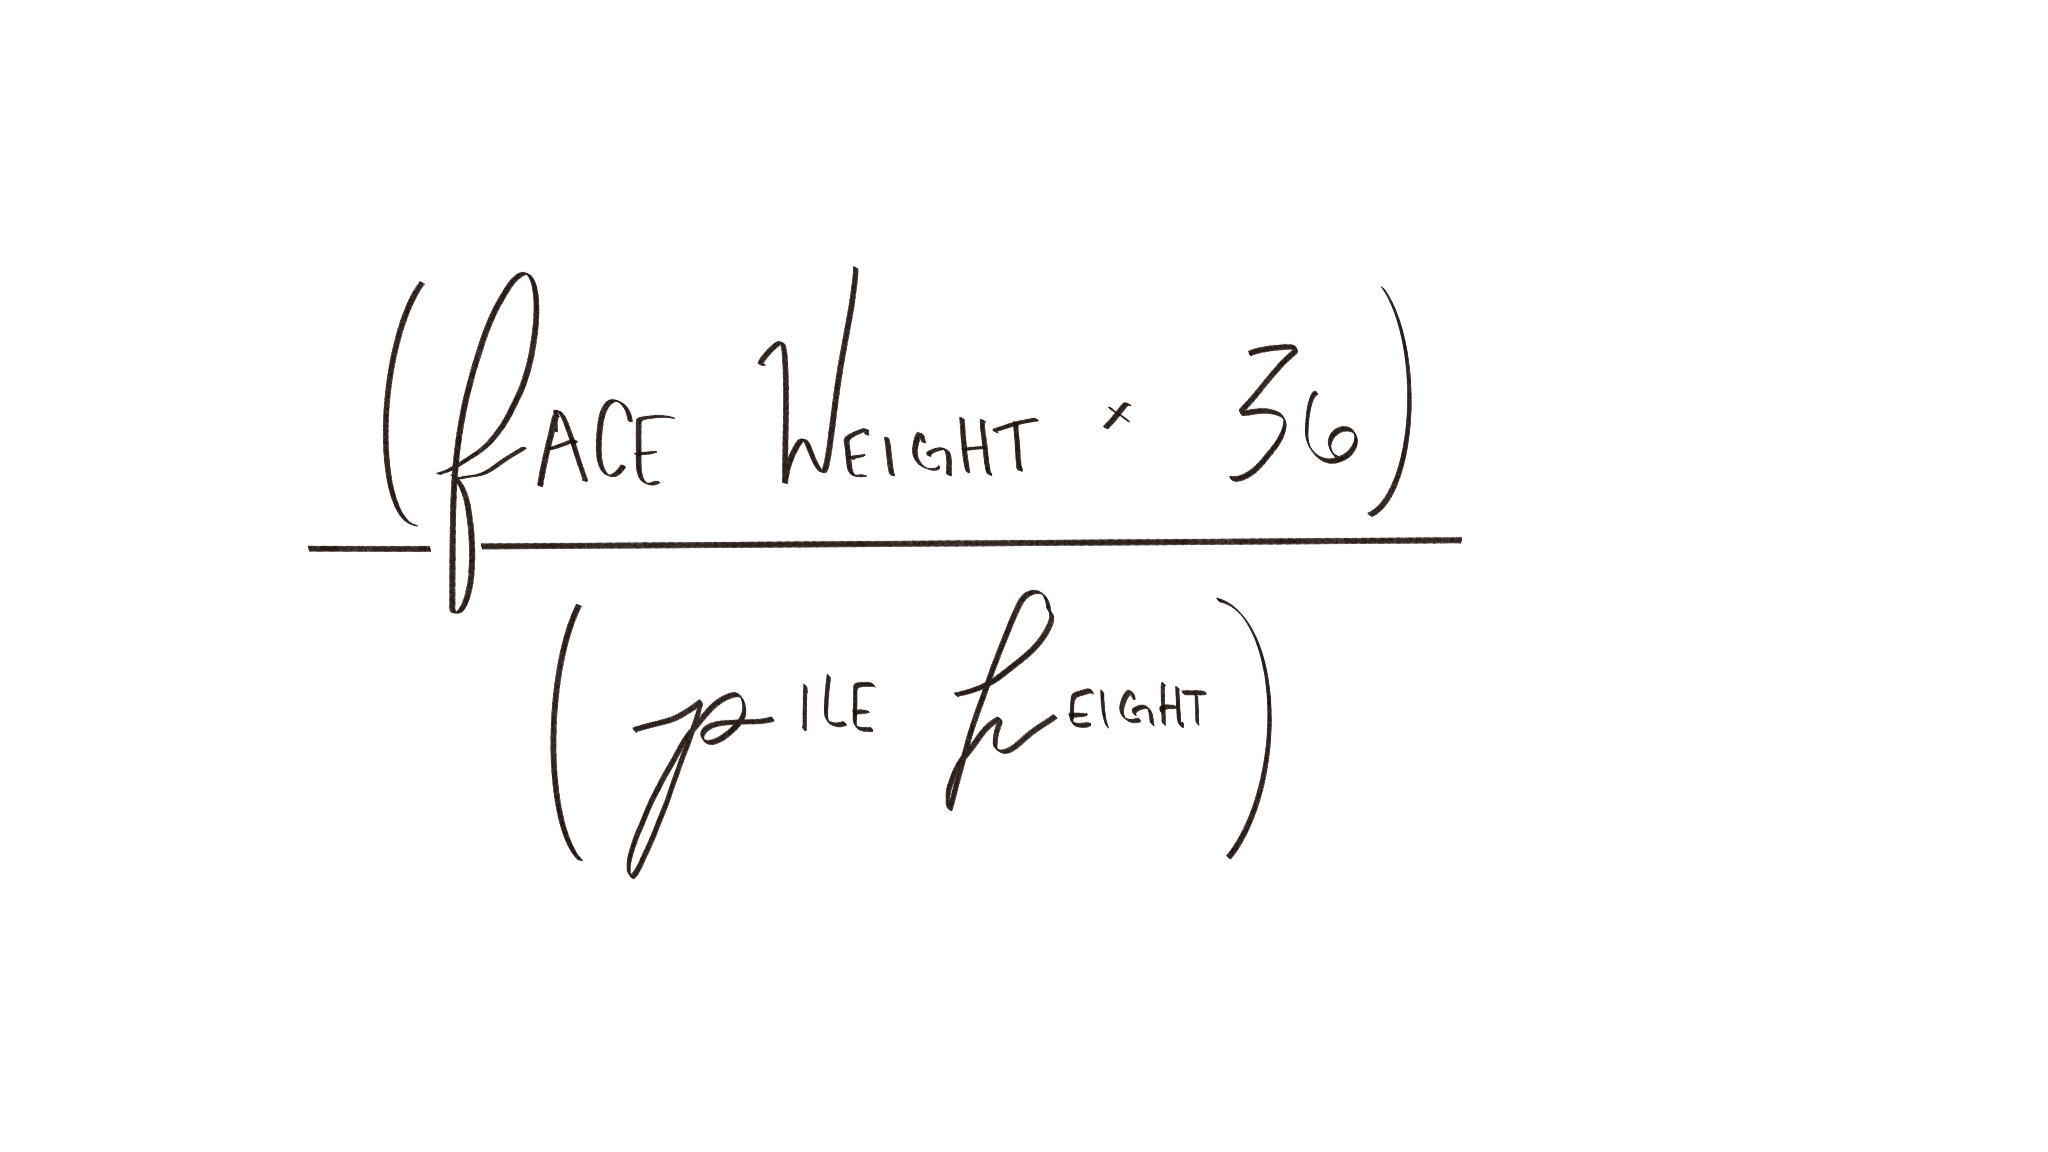 (fACE WEIGHT × 36)
(pILE hEIGHT)